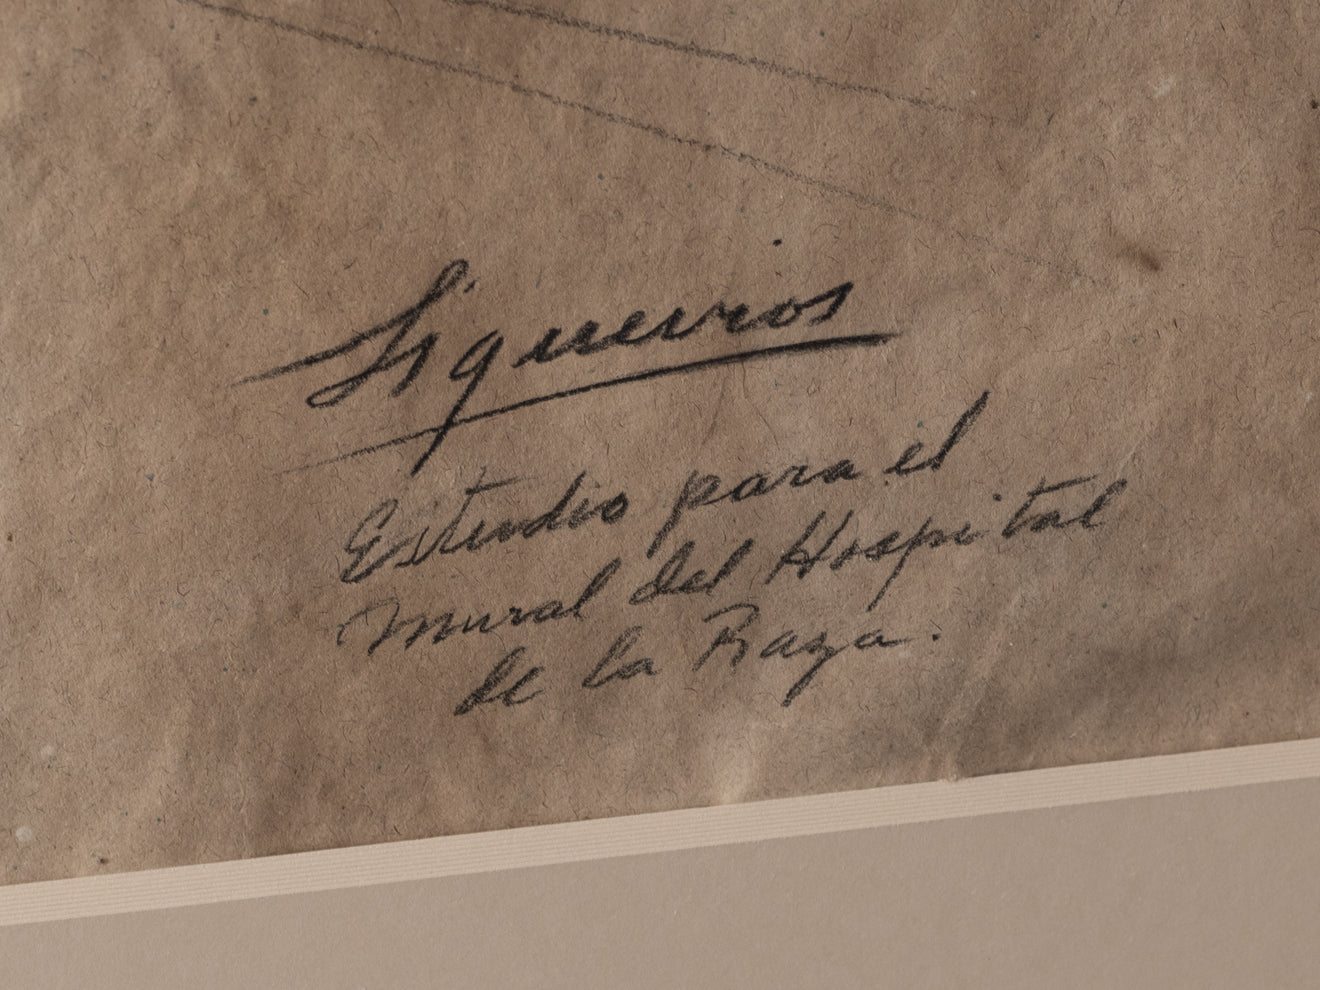 Siqueiros
Estudio para el
Mural del Hospital
de la Raza.